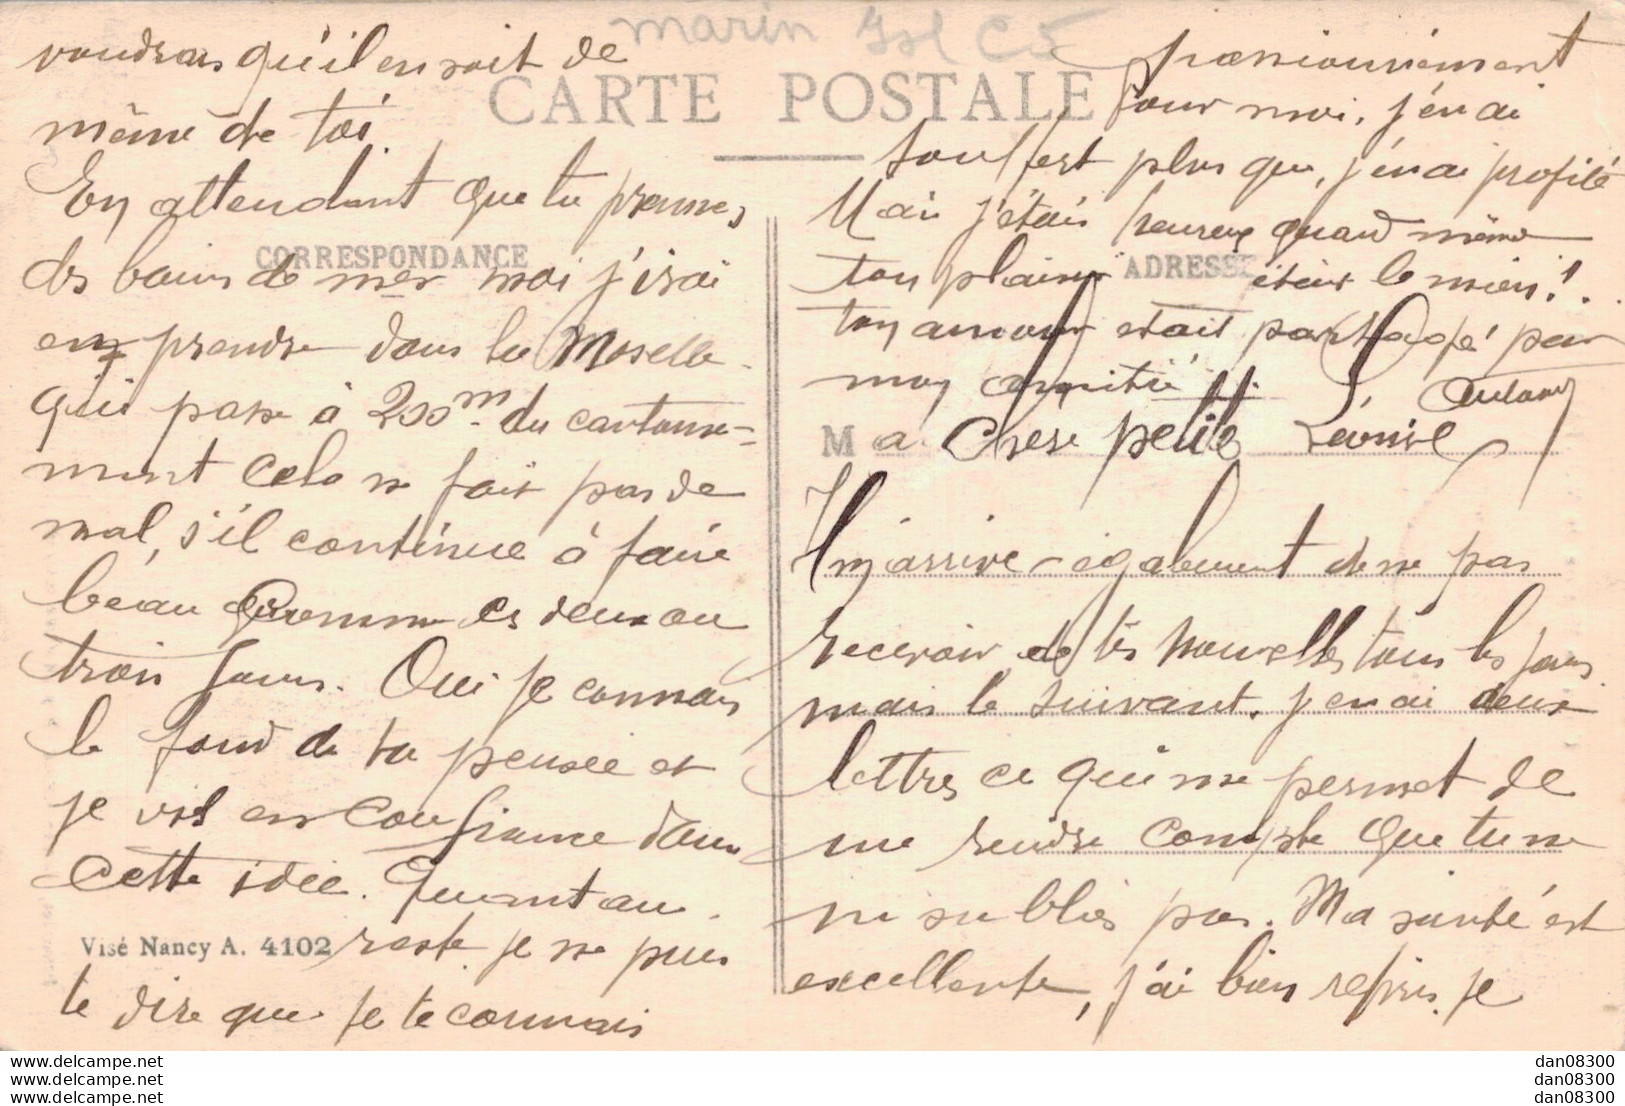 CARTE POSTALE
CORRESPONDANCE
ADRESSE
Ma Chere petite Léonise
Il m'arrive également de ne pas
recevoir de tes nouvelles tous les jours
mais le suivant, j'en ai deux
lettres ce qui me permet de
me rendre compte que tu ne
m'oublies pas. Ma santé est
excellente, j'ai bien repris. je
voudrais qu'il en soit de
même de toi.
En attendant que tu prennes
des bains de mer moi j'irai
en prendre dans la Moselle
qui passe à 200m du cantonne-
ment cela ne fait pas de
mal, s'il continue à faire
beau comme ces deux ou
trois jours. Oui je connais
le fond de ta pensée et
je vis en confiance dans
cette idée. Quant au
reste je ne puis
te dire que je te connais
passionnément
pour moi, j'en ai
souffert plus que j'en ai profité
Mais j'étais heureux quand même
ton plaisir était le mien!
ton amour était partagé par
mon amitié
marin
Visé Nancy A. 4102
dan08300
dan08300
dan08300